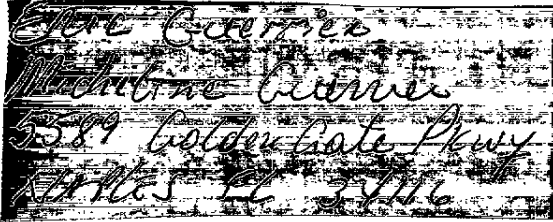 Guerrier
Micheline Guerrier
5589 Golden Gate Pkwy
Naples FL 34116